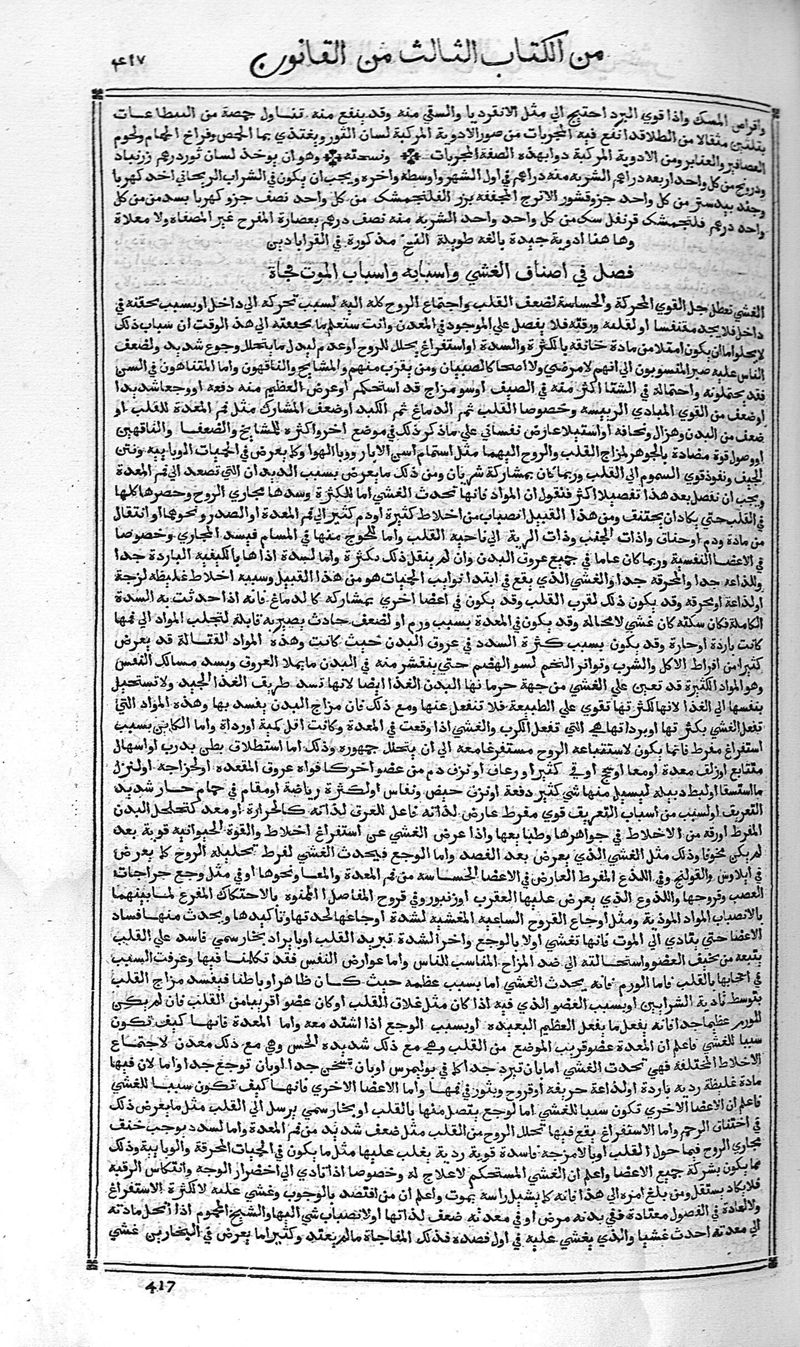 من الكتاب الثالث من القانون ٤١٧
واقراص المسك واذا قوي البرد احتيج الي مثل الانقرديا والسقي منه وقد ينفع منه تناول حمصة من
العصافير والعنابر ومن الادوية المركبة دوا بهذه الصفة المجربات ونسخته وهو ان يوخذ لسان ثور درهم زرنباد
ودرونج من كل واحد اربعه دراهم الشربه منه دراهم في اول الشهر واوسطه واخره ويجب ان يكون في الشراب الريحاني اخذ كهربا
وجند بيدستر من كل واحد جزو قشور الاترج المجففه بزر الفلنجمشك من كل واحد نصف جزو كهربا بسد من من كل
واحد درهم فلنجمشك قرنفل سك من كل واحد واحد الشربه منه نصف درهم بعصارة المفرح غير المصفاه ولا مغلاة
وهاهنا ادوية جيدة بالغه طويلة مذكورة في القراباذين
فصل في اصناف الغشي واسبابه واسباب الموت فجاة
الغشي تعطل جل القوي المحركة والحساسة لضعف القلب واجتماع الروح كله اليه لسبب تحركه الي داخل او بسبب يحقنه في
داخل فلا يجد متنفسا او لقلته ورقته فلا يفضل علي الموجود في المعدن وانت ستعلم مما يجمعته الي هذا الوقت ان سباب ذلك
لا يخلوا ما ان يكون امتلا من مادة خانقه بالكثرة والسدة او استفراغ يحلل للروح او عدم لبدل ما يتحلل وجوع شديد ولضعف
الناس عليه صبرا المنسوبون الي انهم لا مرضي ولا اصحا كالصبيان ومن يقرب منهم والمشايخ والناقهون واما المتناهون في السن
فقد يحتملونه واحتماله في الشتا اكثر منه في الصيف او سو مزاج قد استحكم او عرض العظيم منه دفعه او وجعا شديدا
او ضعف من القوي المبادي الرييسه وخصوصا القلب ثم الدماغ ثم الكبد او ضعف المشارك مثل فم المعدة للقلب او
ضعف من البدن وهزال ونحافه او استيلا عارض نفساني علي ما ذكر ذلك في موضع اخر واكثره للمشايخ والضعفا والناقهين
او وصول قوة مضادة بالجوهر لمزاج القلب والروح اليهما مثل استنشام اسن الابار ووبا الهوا وكما يعرض في الحميات الوبايه ونتن
الجيف ونفوذ قوي السموم الي القلب وربما كان بمشاركة شريان ومن ذلك ما يعرض بسبب الديدان التي تصعد الي فم المعدة
ويجب ان نفصل بعد هذا تفصيلا اكثر فنقول ان المواد فانها تحدث الغشي اما للكثرة وسدها مجاري الروح وحصرها كلها
في القلب حتي يكاد ان يختنف ومن هذا القبيل انصباب من اخلاط كثيرة او دم كثير الي فم المعدة او الصدر ونحوها او انتقال
من مادة ودم او خناق وذات الجنب وذات الرية الي ناحية القلب واما منها في المسام فيسد المجاري وخصوصا
في الاعضا النفسية وربما كان عاما في جميع عروق البدن وان لم ينقل ذلك بكثرة واما لسدة اذاها بالكيفيه الباردة جدا
واللذاعه جدا والمحرقة جدا والغشي الذي يقع في ابتدا نوايب الحميات هو من هذا القبيل وسببه اخلاط غليظه لزجة
او لذاعة او محرقه وقد يكون ذلك لقرب القلب وقد يكون في اعضا اخري بمشاركه كالدماغ فانه اذا حدثت به السدة
الكامله فكان سكته كان غشي لا محاله وقد يكون في المعدة بسبب ورم او لضعف حادث يصير به قابلة لتحلب المواد الي فمها
كانت باردة او حارة وقد يكون بسبب كثرة السدد في عروق البدن حيث كانت وهذه المواد القتالة قد يعرض
كثيرا من افراط الاكل والشرب وتواتر التخم لسو الهضم حتي ينتشر منه في البدن ما يملا العروق ويسد مسالك النفس
وهو المواد الكثيرة قد تعين علي الغشي من جهة حرمانها البدن الغذا ايضا لانها تسد طريق الغذا الجيد ولا تستحيل
بنفسها الي الغذا لانها لكثرتها تقوي علي الطبيعة فلا تنفعل عنها ومع ذلك فان مزاج البدن يفسد بها وهذه المواد التي
تفعل الغشي بكثرتها او برداتها هي التي تفعل الكرب والغشي اذا وقعت في المعدة وكانت اقل كمية او رداة واما الكاين بسبب
استفراغ مفرط فانما يكون لاستتباعه الروح مستفرغا معه الي ان يتحلل جمهوره وذلك اما استطلاق بطن بدرب او اسهال
متتابع او زلف معدة او معا او سحج او قي كثير او رعاف او نزف دم من عضو اخر كافواه عروق المقعدة او لجراحه او لبزل
ما استسقا او لبط دبيله ليسيل منها شي كثير دفعة او نزف حيض ونفاس او لكثرة رياضة او مقام في حمام حار شديد
التعريف او لسبب من اسباب التعريف قوي مفرط عارض لذاته فاعل للعرق لذاته كالحرارة او معد كتخلخل البدن
المفرط او رقه من الاخلاط في جواهرها وطباعها واذا عرض الغشي عن استفراغ اخلاط والقوة الحيوانيه قوية بعد
لم يكن مخوفا وذلك مثل الغشي الذي يعرض بعد الفصد واما الوجع فيحدث الغشي لفرط تحليله الروح كما يعرض
في ايلاوس والقولنج وفي اللذع المفرط العارض في الاعضا الحساسه من فم المعدة والمعا ونحوها او في مثل وجع جراحات
العصب وقروحها واللذوع الذي يعرض عليها العقرب او زنبور وفي قروح المفاصل الممنوه بالاحتكاك المفرغ لما بينهما
بالانصباب المواد الموذية ومثل اوجاع القروح الساعيه المغشية لشدة اوجاعها لحدتها وتاكيدها ويحدث منها فساد
الاعضا حتي يتادي الي الموت فانها تغشي اولا بالوجع واخرا لشدة تبريد القلب او بايراد بخار سمي فاسد علي القلب
يتبعه من تحيف العضو واستحالته الي ضد المزاج المناسب للناس واما عوارض النفس فقد تكلمنا فيها وعرفت السبب
في اتحابها بالقلب فاما الورم فانه يحدث الغشي اما بسبب عظمه حيث كان ظاهرا وباطنا فيفسد مزاج القلب
بتوسط تادية الشرايين او بسبب العضو الذي فيه اذا كان مثل غلاف القلب او كان عضوا قريبا من القلب فان لم يكن
للورم عظيما جدا فانه يفعل ما يفعل العظيم البعيده او بسبب الوجع اذا اشتد معه واما المعدة فانها كيف تكون
سببا للغشي فاعلم ان المعدة عضو قريب الموضع من القلب وهي مع ذلك شديده الحس وهي مع ذلك معدن لاجتماع
الاخلاط المختلفة فهي تحدث الغشي اما بان تبرد جدا كما في بوليموس او بان تسخن جدا او بان توجع جدا او اما لان فيها
مادة غليظة رديه باردة او لذاعة حريفه او قروح وبثور في فمها واما الاعضا الاخري فانها كيف تكون سببا للغشي
فاعلم ان الاعضا الاخري تكون سببا للغشي اما لوجع يتصل منها بالقلب او بخار سمي يرسل الي القلب مثل ما يعرض ذلك
في اختناق الرحم واما الاستفراغ يقع فيها تحلل الروح من القلب مثل ضعف شديد من فم المعدة واما لسدد يوجب خنف
مجاري الروح فيما حول القلب او بالامزجه فاسدة قوية ردية يغلب عليها مثل ما يكون في الحميات المحرقة والوبايية وذلك
مما يكون بشركة جميع الاعضا واعلم ان الغشي المستحكم لا علاج له وخصوصا اذا تادي الي اخضرار الوجه وانتكاس الرقبه
فلا يكاد يستقل ومن بلغ امره الي هذا فانه كما يشيل راسه يموت واعلم ان من افتصد بالوجوب وغشي عليه لا لكثرة الاستفراغ
ولا العادة في الفصول معتادة ففي بدنه مرض او في معدته ضعف لذاتها او لانصباب شي اليها والشيخ المحموم اذا انحل مادته
الي معدته احدث غشيا والذي يغشي عليه في اول فصده فذلك المفاجاة ما لم يعتد وكثيرا ما يعرض في البخارين غشي
417